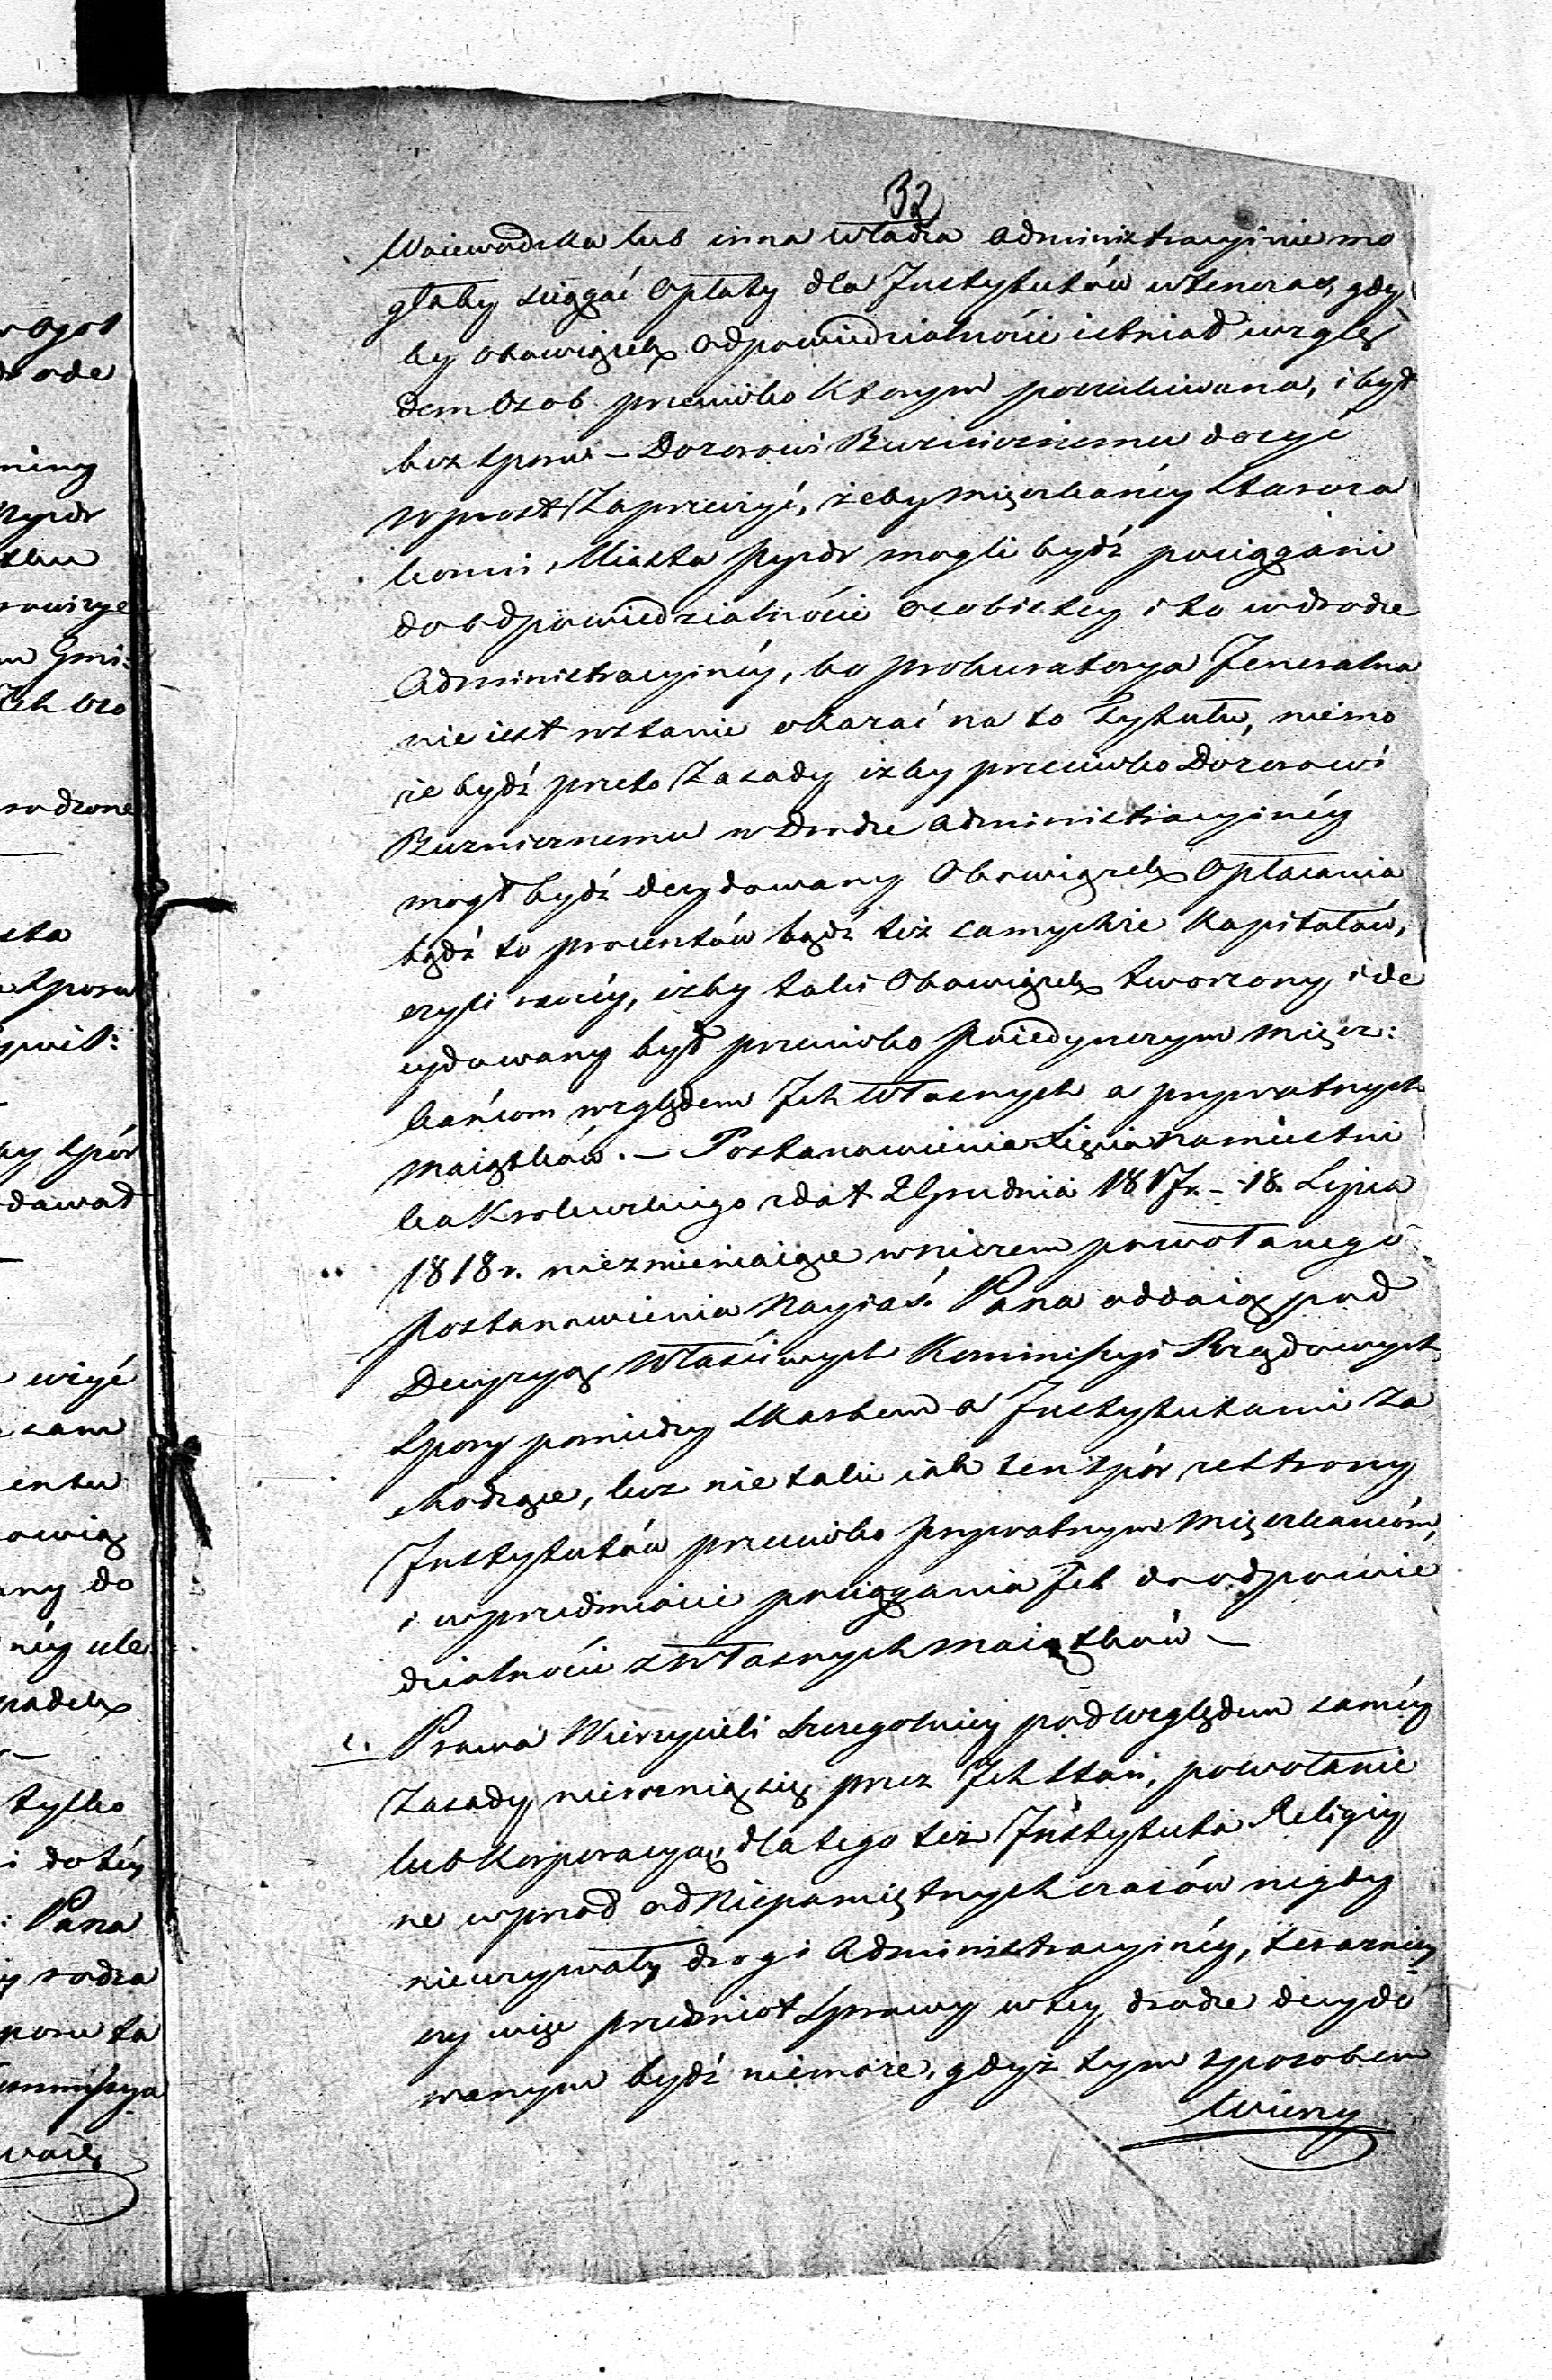 32
Woiewodzka lub inna władza administracyi nie mo
głaby sciągać Opłaty dla Instytutów wtenczas, gdy
by obowiązek odpowiedzialności istniał wzglę
dem Osob przeciwko ktorym poszukiwana, i był
bez sporu – Dozorowi Bużniczemu dosyć
wprost Zaprzeczyć, żeby mięszkańcy Staroza
konni Miasta Pyzdr mogli bydź pociągani
do odpowiedzialności osobistey i to w drodze
Administracyinéy, bo prokuratorya Jeneralna
nie iest wstanie okazać na to Tytułu, niemo
że bydź przeto Zasady iżby przeciwko Dozorowi
Bużniczemu w Drodze administracyinéy
mogł bydź decydowany Obowiązek Opłacania
bądź to procentów bądź też samychże Kapitałów,
czyli raczéy, iżby taki Obowiązek tworzony i de
cydowany był przeciwko Poiedynczym Mięsz:
kańcom względem Ich własnych a prywatnych
maiątków. – Postanowienia Xięcia Namiestni
ka Krolewskiego z dat 2 Grudnia 1817 r. – 18. Lipca
1818 r. niezmieniaiące wniczem powołanego
Postanowienia Nayiaś. Pana oddaią pod
Decyzyą Właściwych Kommissyi Rządowych
Spory pomiędzy Skarbem a Instytutami Za
chodzące, lecz nie takie iak ten spór ze strony
Instytutów przeciwko prywatnym Mięszkańcóm,
i w przedmiocie pociągania Ich do odpowie
dzialności z własnych maiątków –
c. Prawa Wierzycieli szczegolniéy pod względem saméy
Zasady nieróżnią się przez Ich Stan, powołanie
lub Korporacyą, dla tego też Instytuta Religiy
ne wprzod od Niepamiętnych czasów nigdy
nieużywały drogi Administracyinéy, terazniey
szy więc przedmiot Sprawy w tey drodze decydo
wanym bydź niemoże, gdyż tym sposobem
wogol
drode
miny
Pyzdr
Gmi:
Ich oso
rodzone
Sporu
by Spór
dawał
sam
any do
padek
tylko
i do téy
: Pana